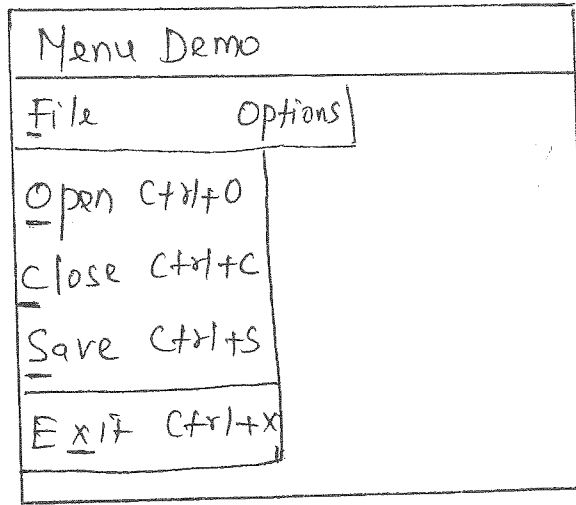 Menu Demo
File Options
Open Ctrl+O
Close Ctrl+C
Save Ctrl+S
Exit Ctrl+X